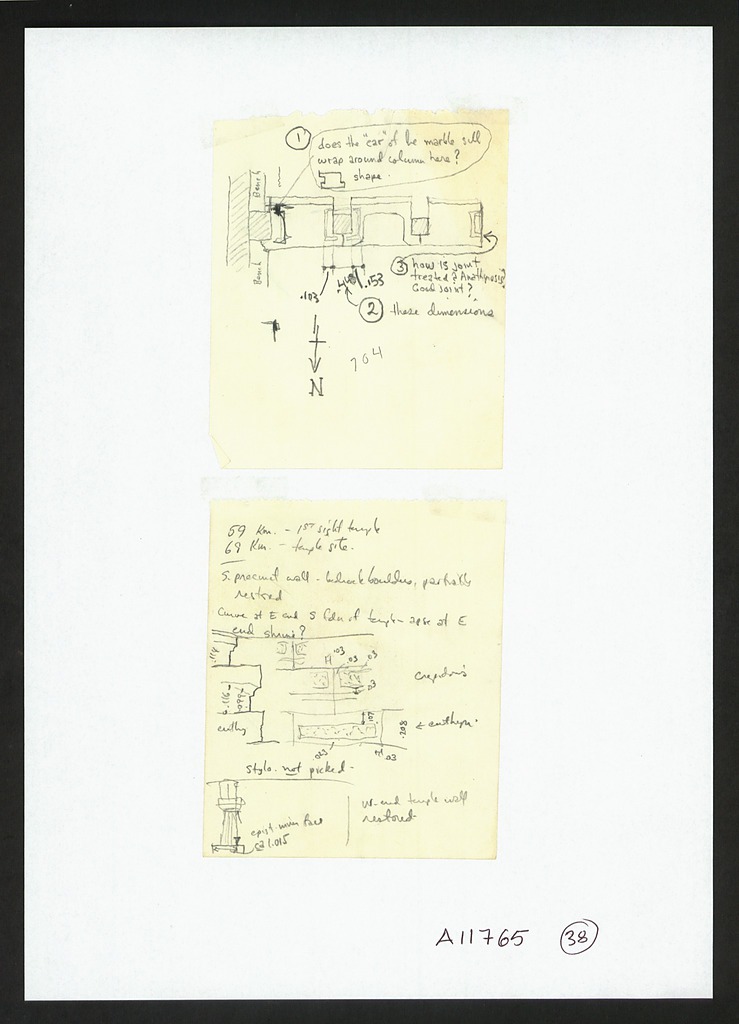 1
does the "ear" of the marble sill
wrap around column here?
shape.
Bench
Bench
3 how is joint
treated? Anathyrosis?
Good joint?
.103
.448
.153
2 these dimensions
704
N
59 Km. - 1ST sight temple
69 Km. - temple site.
S. precinct wall - boulders, partially
restored
Curve at E end S side of temple - apse at E
end shrine?
.114
H .03 .03 .03
.03
.116
.099
crepidoma
.107
.208
euthy
← euthyn.
.023
H .03
stylo. not picked -
epist. 
ca 1.015
W. end temple wall
restored
A11765 38